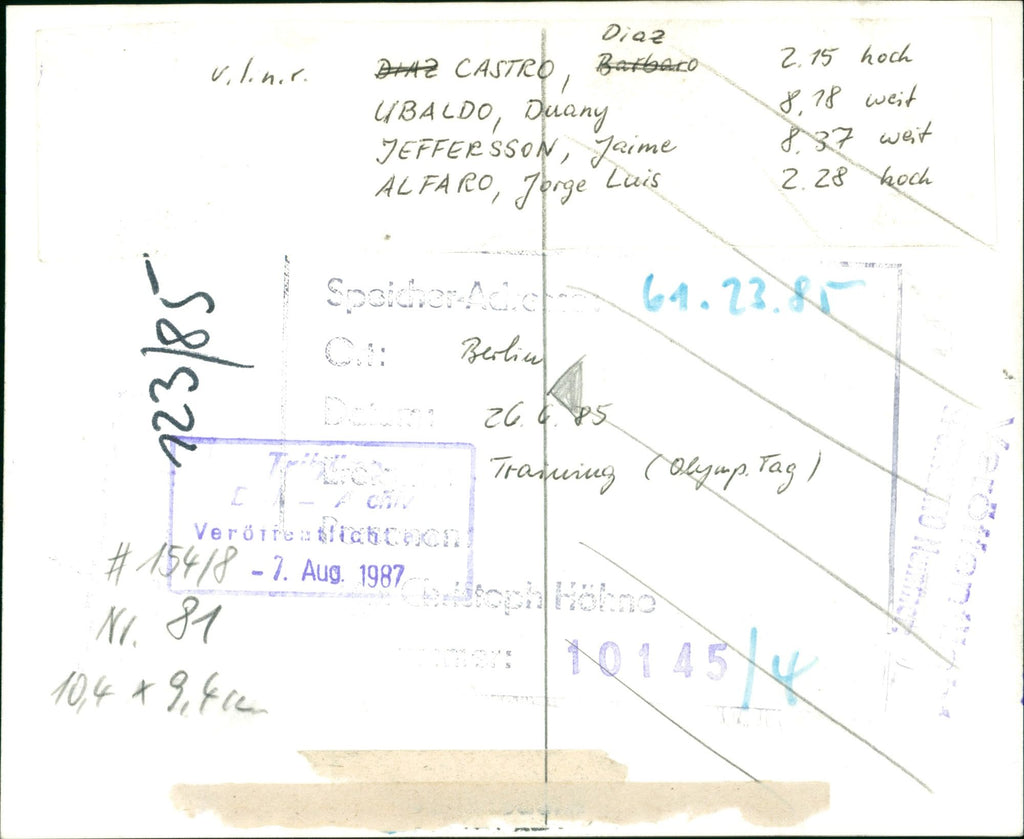 Diaz
v.l.n.r. DIAZ CASTRO, Barbaro 2.15 hoch
UBALDO, Duany 8,18 weit
JEFFERSSON, Jaime 8.37 weit
ALFARO, Jorge Luis 2.28 hoch
123/85
Speicher-Adresse: 61.23.85
Ort: Berlin
Datum: 26.6.85
Training (Olymp. Tag)
Personen:
Veröffentlicht
- 7. Aug. 1987
# 154/8
Christoph Höhne
Nr. 81
10145/4
10,4 x 9,4 cm